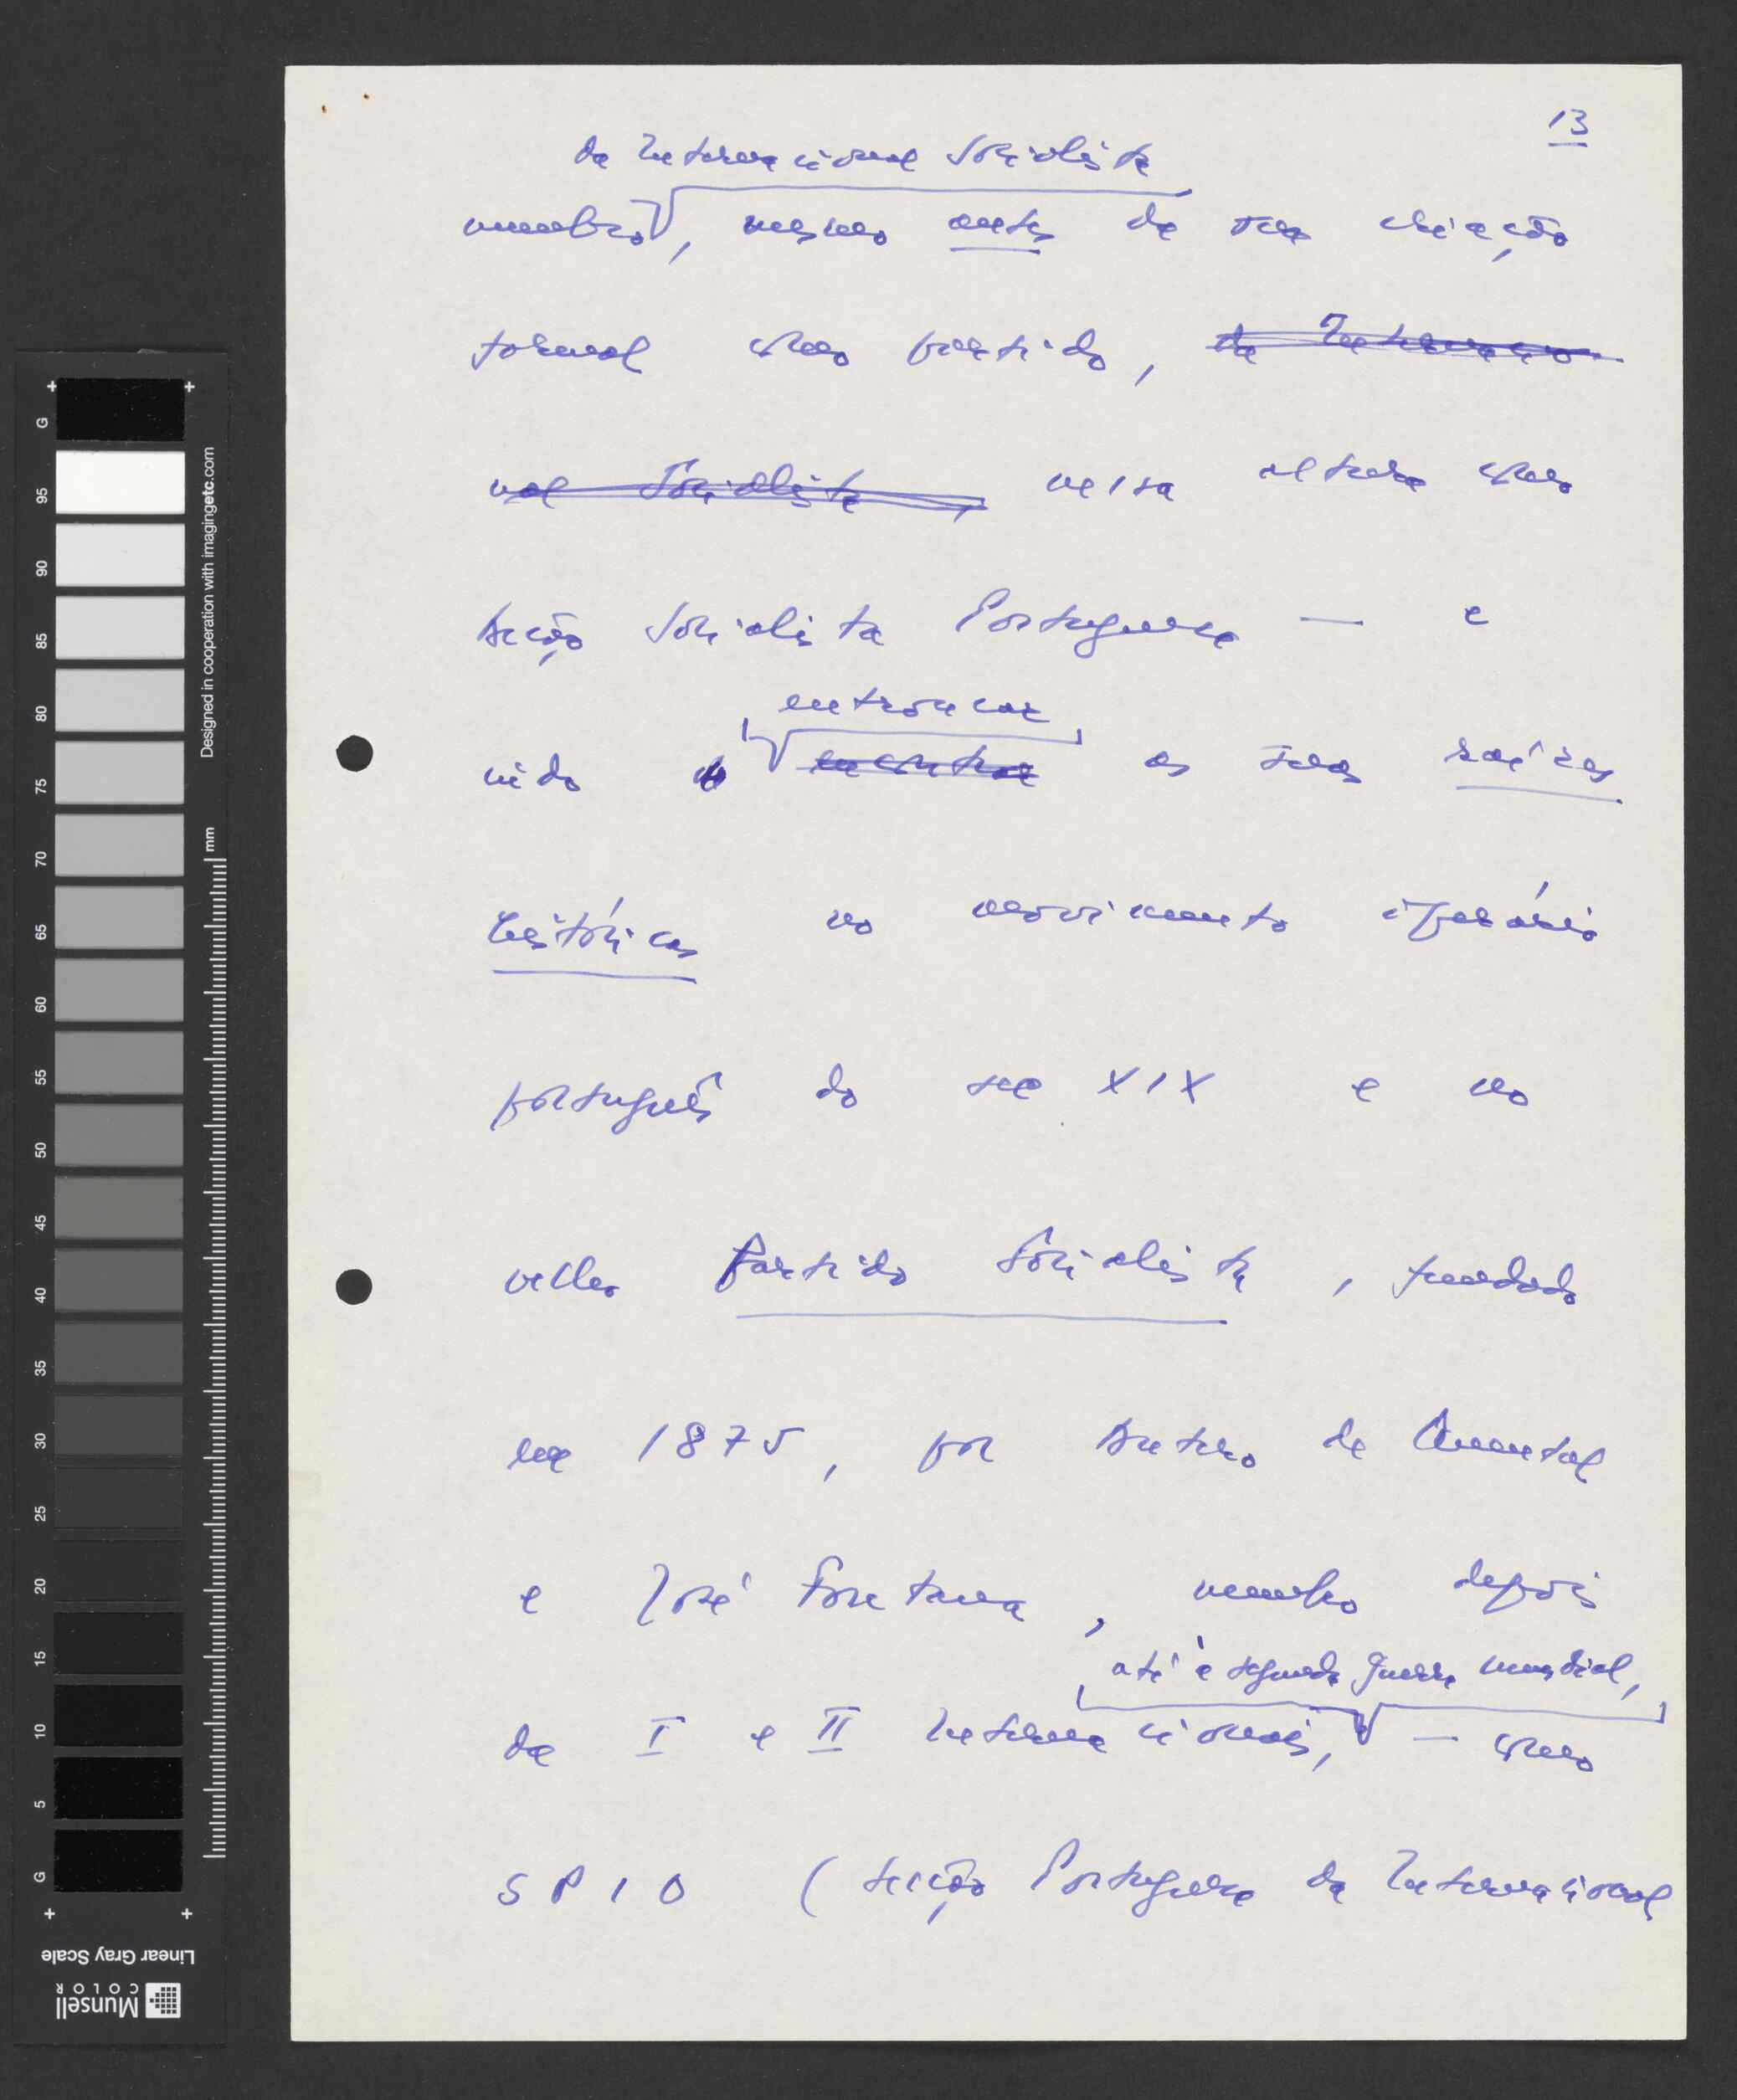 13
da Internacional Socialista
membro, mesmo antes da sua criação
formal como partido, da Internacio-
nal Socialista, nessa altura como
Acção Socialista Portuguesa — e
indo entroncar
encontrar as suas raízes
históricas no movimento operário
português do sec XIX e no
velho Partido Socialista, fundado
em 1875, por Antero de Quental
e José Fontana, membro depois
até à segunda guerra mundial,
da I e II Internacionais, — como
S P I O (Secção Portuguesa da Internacional
G
95
90
85
80
75
70
65
60
55
50
45
40
35
30
25
20
15
10
5
G
Designed in cooperation with imagingetc.com
mm
Linear Gray Scale
Munsell
COLOR